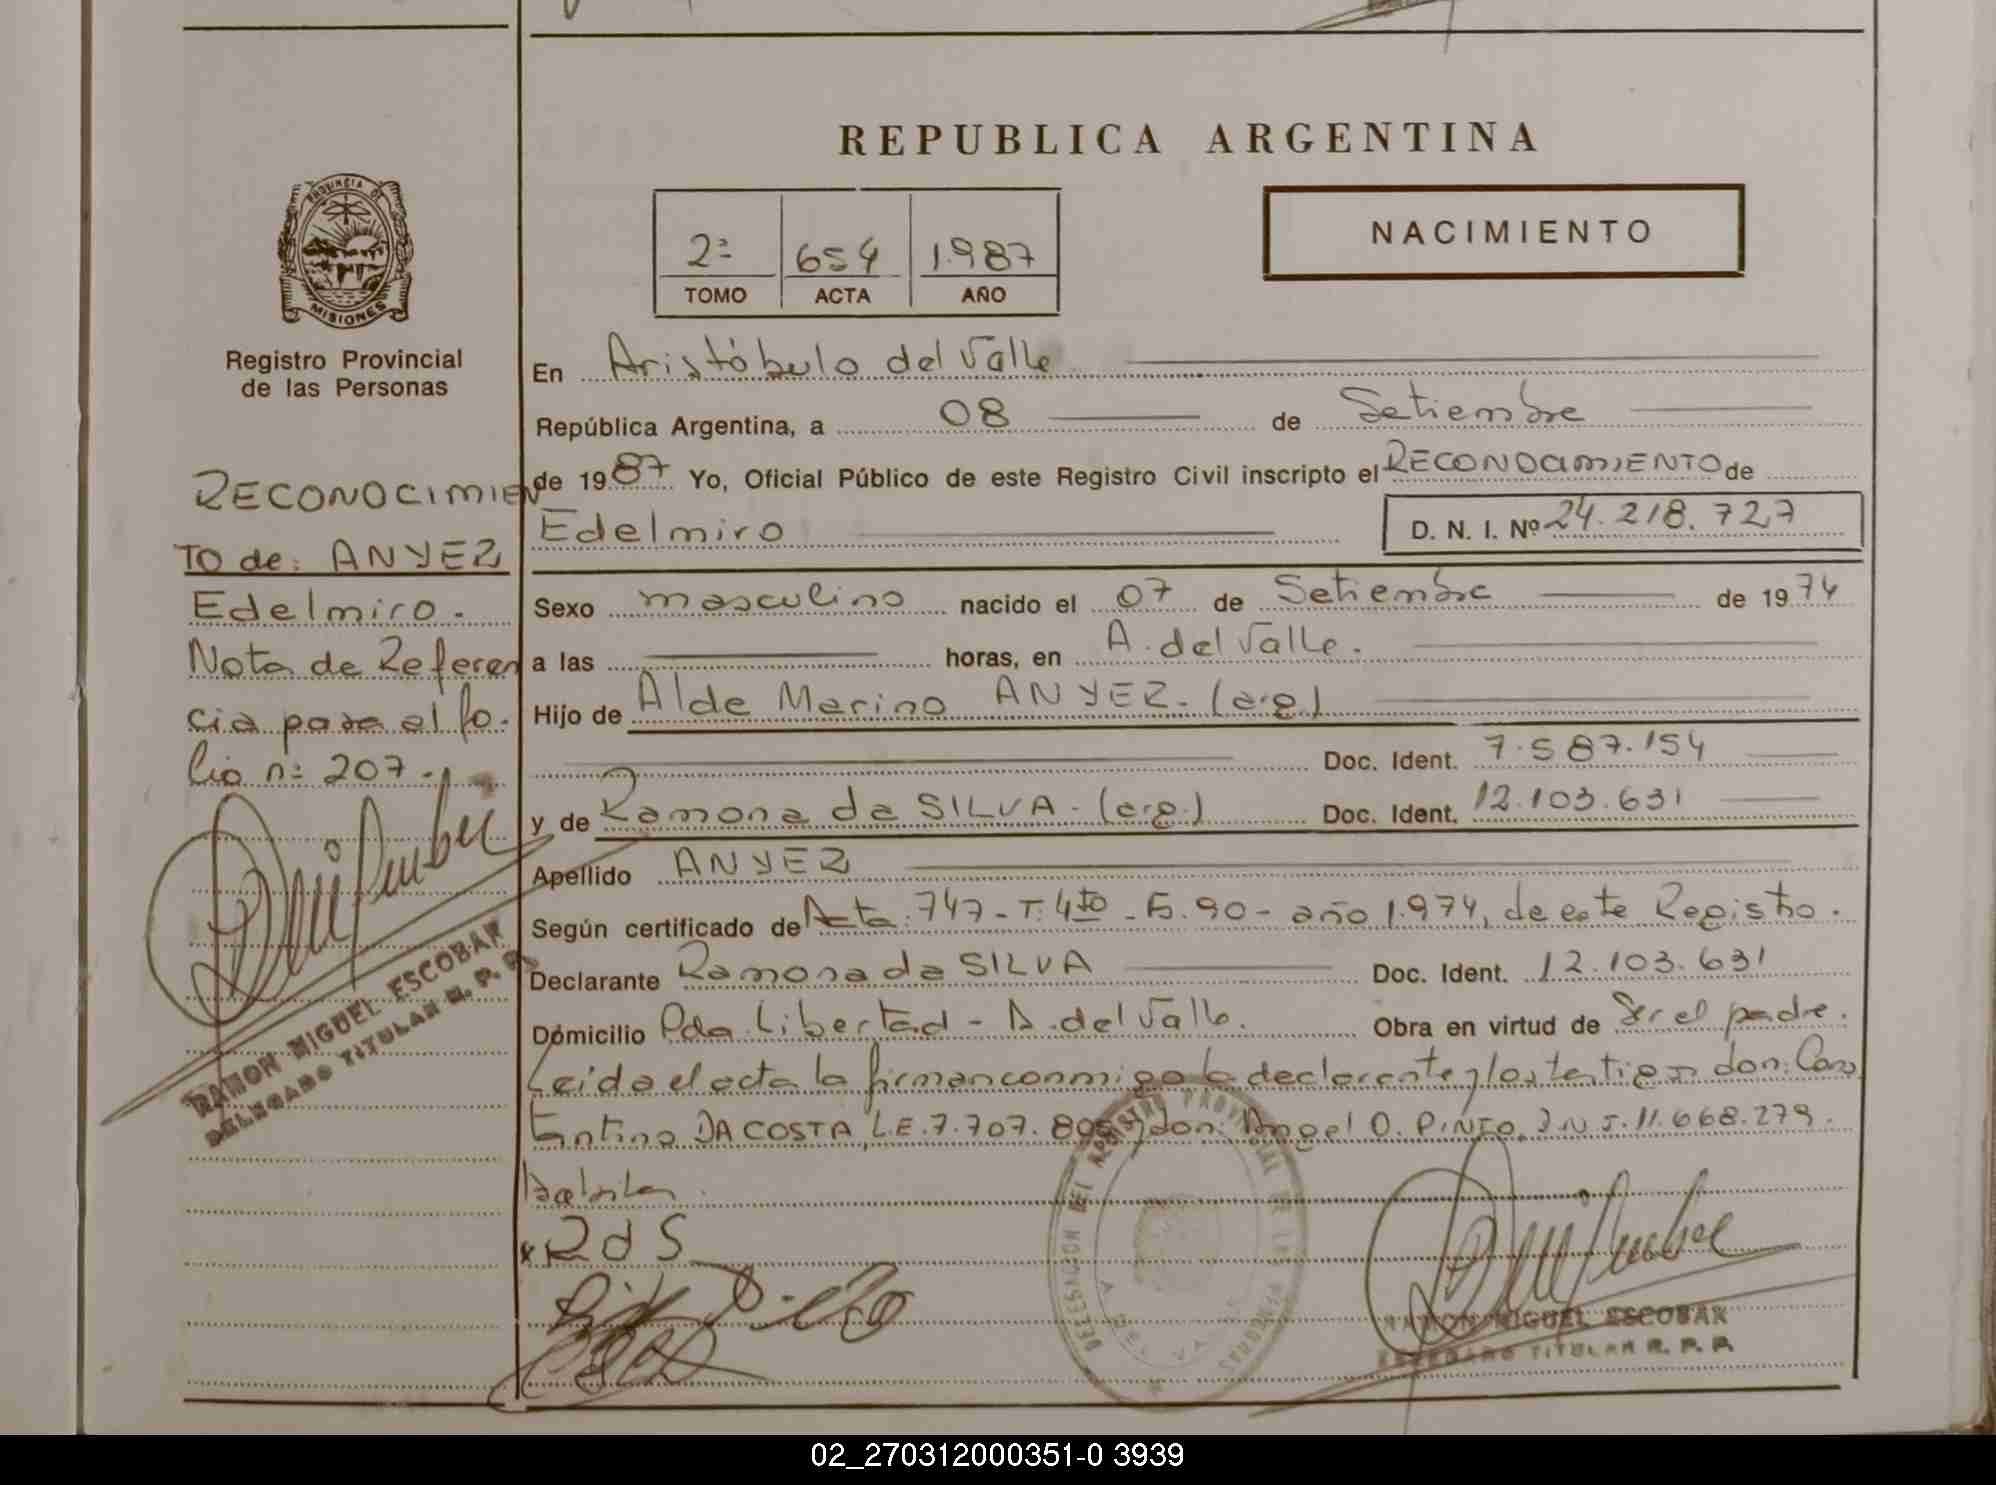 REPUBLICA ARGENTINA
NACIMIENTO
2ª 654 1.987
TOMO ACTA AÑO
PROVINCIA DE
MISIONES
Registro Provincial
de las Personas
RECONOCIMIEN
TO de: ANYEZ
Edelmiro.
Nota de Referen
cia pasa al fo.
lio nº 207.-
RAMON MIGUEL ESCOBAR
DELEGADO TITULAR R. P. P.
En Aristóbulo del Valle
República Argentina, a 08 de Setiembre
de 1987 Yo, Oficial Público de este Registro Civil inscripto el RECONOCIMIENTO de
Edelmiro D. N. I. Nº 24.218.727
Sexo masculino nacido el 07 de Setiembre de 1974
a las horas, en A. del Valle.
Hijo de Alde Marino ANYEZ. (arg)
Doc. Ident. 7.587.154
y de Ramona da SILVA. (arg.) Doc. Ident. 12.103.631
Apellido ANYEZ
Según certificado de Acta. 747 - T: 4to - Fº. 90 - año 1.974, de este Registro.
Declarante Ramona da SILVA Doc. Ident. 12.103.631
Domicilio Pda. Libertad - A. del Valle. Obra en virtud de Ser el padre.
Leida el acta la firman conmigo la declarante y los testigos don: Cons
tantino DA COSTA, L.E. 7.707. y don: Angel O. PINTO, D.N.I. 11.668.279.
R d S
RAMON MIGUEL ESCOBAR
DELEGADO TITULAR R. P. P.
02_270312000351-0 3939